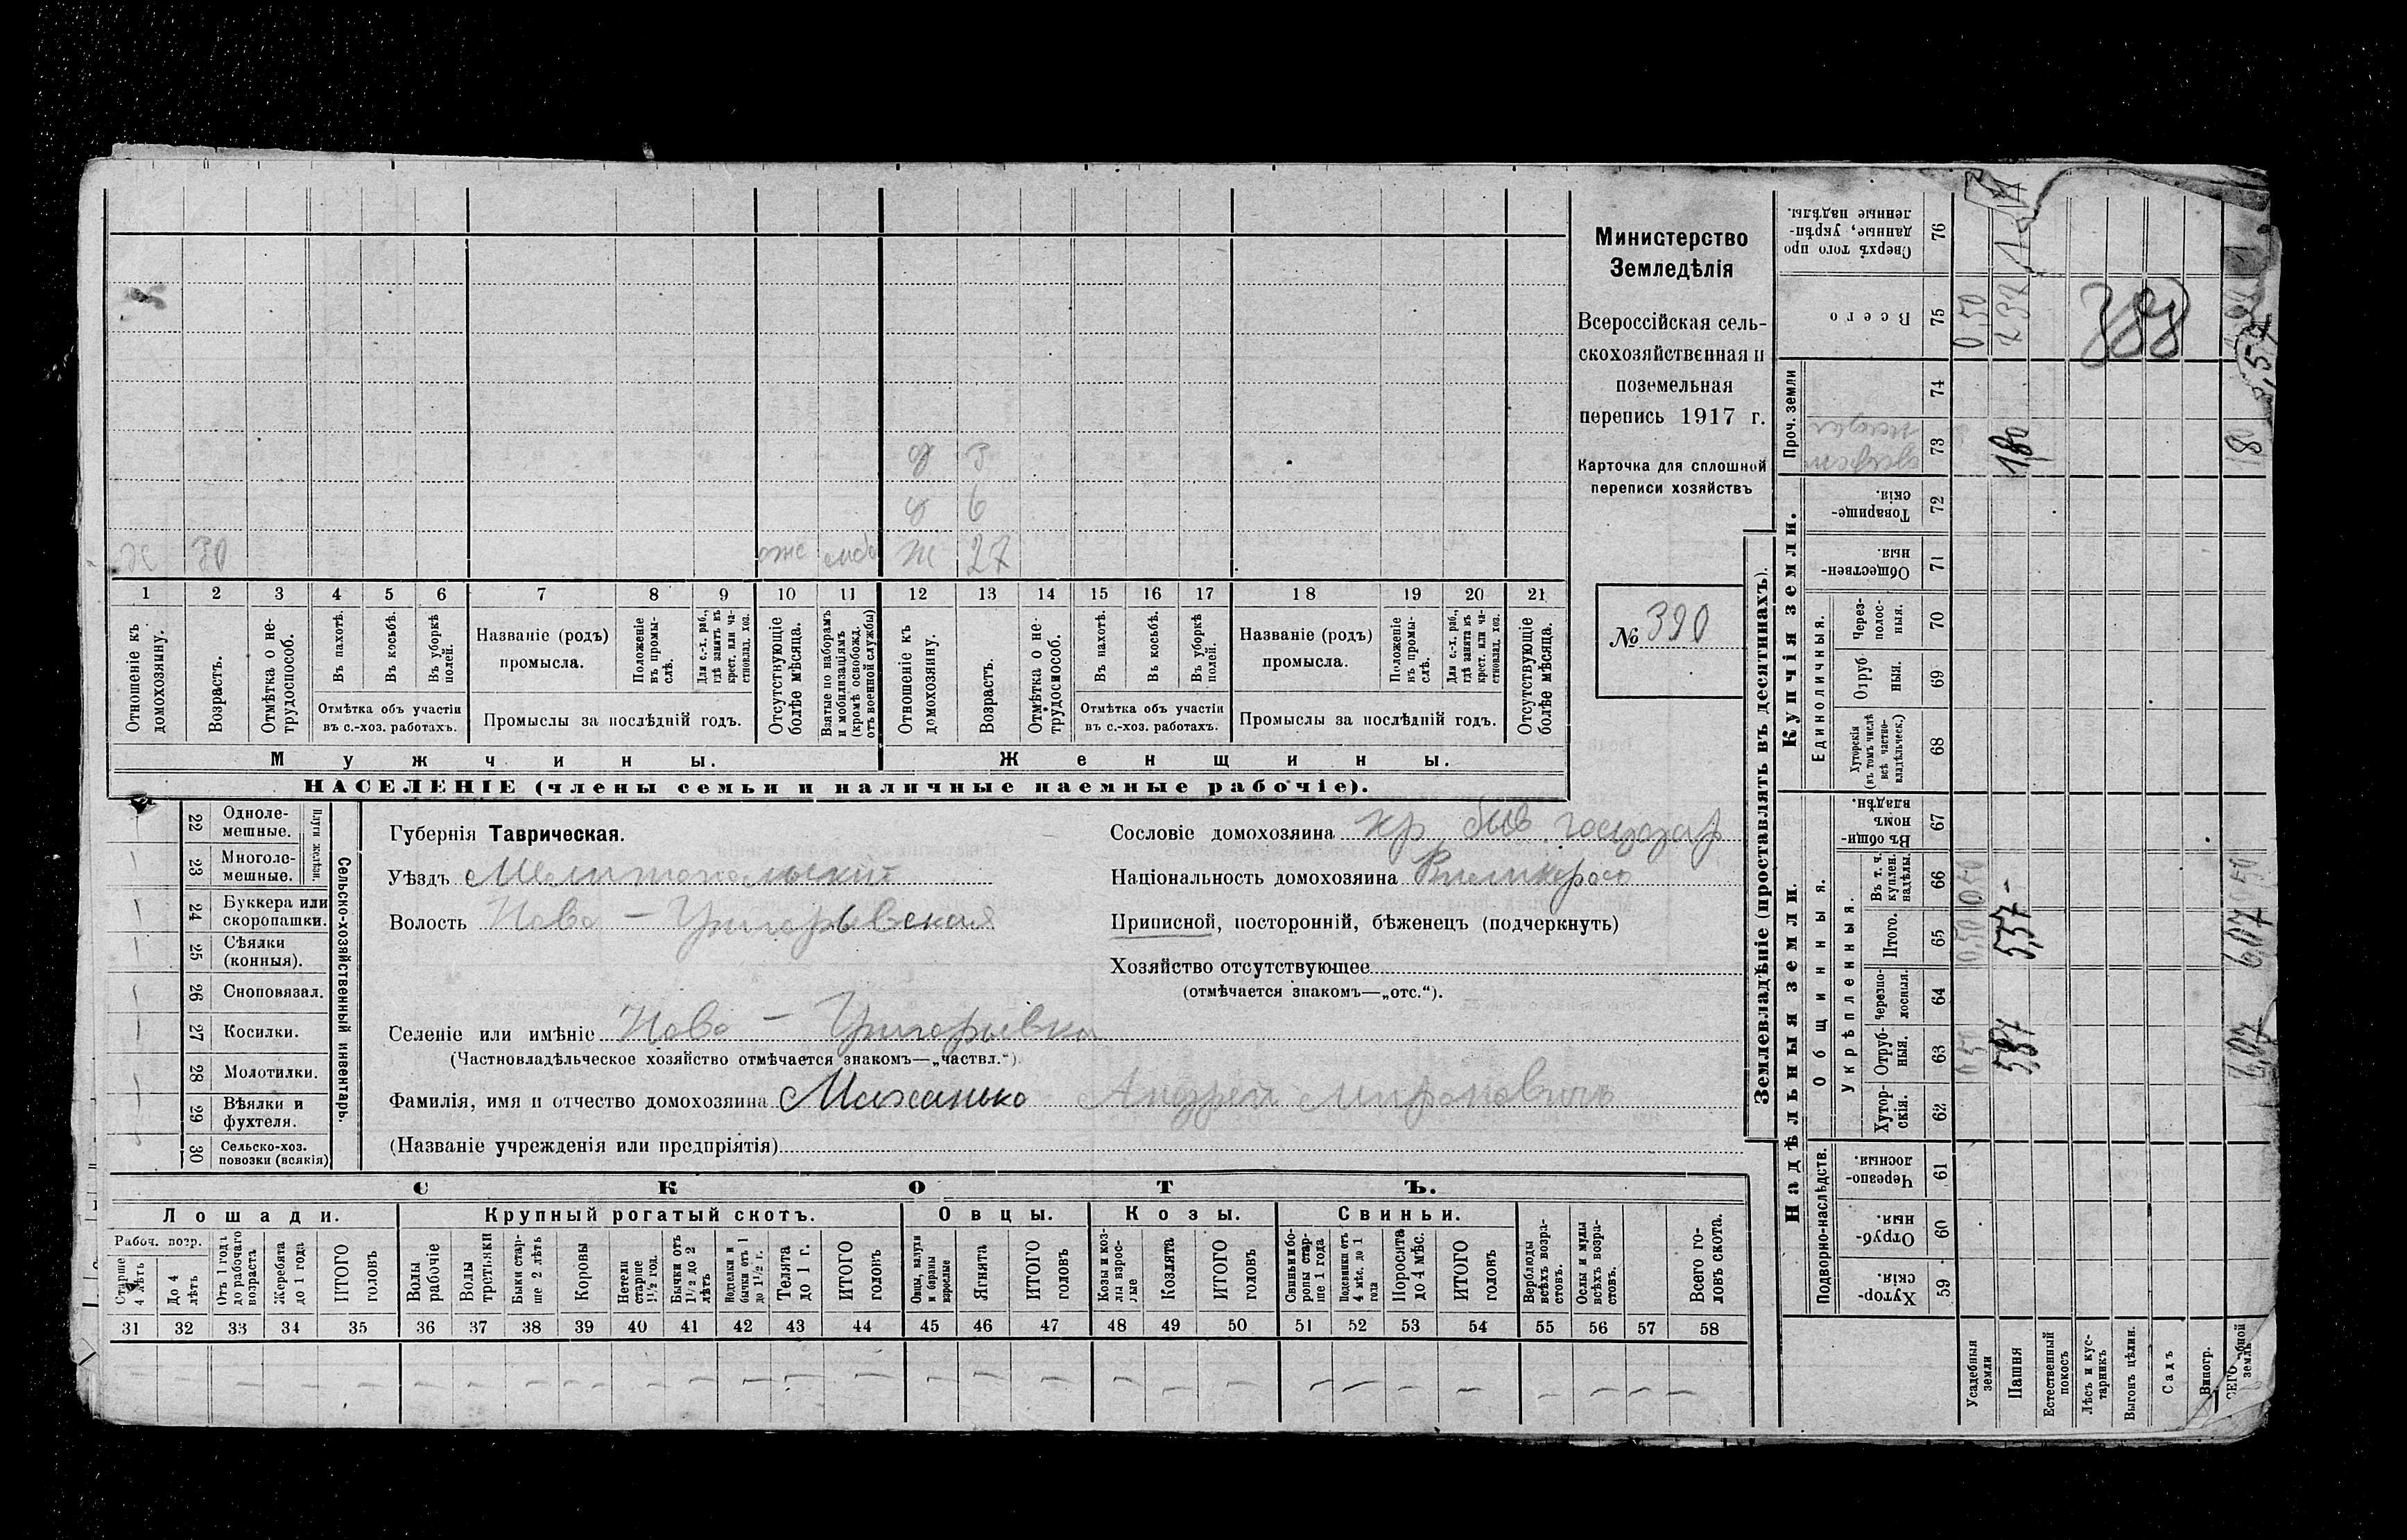 Министерство
Земледѣлія
Всероссійская сель-
скохозяйственная и
поземельная
перепись 1917 г.
Карточка для сплошной
переписи хозяйствъ
№ 390
д 3
д 6
х 30 Ж 27
1 2 3 4 5 6 7 8 9 10 11 12 13 14 15 16 17 18 19 20 21
Отношеніе къ домохозяину.
Возрастъ.
Отмѣтка о не-трудоспособ.
Въ пахотѣ.
Въ косьбѣ.
Въ уборкѣ полей.
Отмѣтка объ участіи
въ с.-хоз. работахъ.
Названіе (родъ)
промысла.
Положеніе въ промы-слѣ.
Для с.-х. раб., гдѣ занятъ въ крест. или ча-стновлад. хоз.
Промыслы за послѣдній годъ.
Отсутствующіе болѣе мѣсяца.
Взятые по наборамъ и мобилизаціямъ (кромѣ освобожд. отъ военной службы)
Отношеніе къ домохозяину.
Возрастъ.
Отмѣтка о не-трудоспособ.
Въ пахотѣ.
Въ косьбѣ.
Въ уборкѣ полей.
Отмѣтка объ участіи
въ с.-хоз. работахъ.
Названіе (родъ)
промысла.
Положеніе въ промы-слѣ.
Для с.-х. раб., гдѣ занята въ крест. или ча-стновлад. хоз.
Промыслы за послѣдній годъ.
Отсутствующіе болѣе мѣсяца.
Мужчины. Женщины.
НАСЕЛЕНІЕ (члены семьи и наличные наемные рабочіе).
22 Одноле-мешные.
23 Многоле-мешные.
Плуги желѣзн.
24 Буккера или скоропашки.
25 Сѣялки (конныя).
26 Сноповязал.
27 Косилки.
28 Молотилки.
29 Вѣялки и фухтеля.
30 Сельско-хоз. повозки (всякія)
Сельско-хозяйственный инвентарь.
Губернія Таврическая.
Уѣздъ Мелитопольскій
Волость Ново-Григорьевская
Селеніе или имѣніе Ново-Григорьевка
(Частновладѣльческое хозяйство отмѣчается знакомъ—„частвл.“)
Фамилія, имя и отчество домохозяина Маханько Андрей Мироновичъ
(Названіе учрежденія или предпріятія)
Сословіе домохозяина кр быв государ
Національность домохозяина Великоросъ
Приписной, посторонній, бѣженецъ (подчеркнуть)
Хозяйство отсутствующее
(отмѣчается знакомъ—„отс.“).
СКОТЪ.
Лошади. Крупный рогатый скотъ. Овцы. Козы. Свиньи.
Рабоч. возр.
Старше 4 лѣтъ
До 4 лѣтъ
Отъ 1 года до рабочаго возраста
Жеребята до 1 года
ИТОГО головъ
Волы рабочіе
Волы третьяки
Быки стар-ше 2 лѣтъ
Коровы
Нетели старше 1½ год.
Бычки отъ 1½ до 2 лѣтъ
Телята до 1 г.
ИТОГО головъ
Овцы, валухи и бараны взрослые
Ягнята
ИТОГО головъ
Козы и коз-лы взрос-лые
Козлята
ИТОГО головъ
Свиньи и бо-ровы стар-ше 1 года
Подсвинки отъ 4 мѣс. до 1 года
Поросята до 4 мѣс.
ИТОГО головъ
Верблюды всѣхъ возра-стовъ.
Ослы и мулы всѣхъ возра-стовъ.
Всего го-ловъ скота.
31 32 33 34 35 36 37 38 39 40 41 42 43 44 45 46 47 48 49 50 51 52 53 54 55 56 57 58
Землевладѣніе (проставлять въ десятинахъ).
Надѣльныя земли. Купчія земли. Проч. земли
Подворно-наслѣдств.
Общинныя.
Укрѣпленныя.
Единоличныя.
Хутор-скія. 59
Отруб-ныя. 60
Черезпо-лосныя. 61
Хутор-скія. 62
Отруб-ныя. 63
Черезпо-лосныя. 64
Итого. 65
Въ т. ч. куплен. надѣлы. 66
Въ общи-номъ владѣн. 67
Хуторскія (въ томъ числѣ всѣ частно-владѣльческ.) 68
Отруб-ныя. 69
Через-полос-ныя. 70
Обществен-ныя. 71
Товарище-скія. 72
73
74
Всего 75
Сверхъ того про-данные, укрѣп-ленные надѣлы. 76
Усадебныя земли 0,50 0,50 0,50 0,50
Пашня 5,57 180
Естественный покосъ
Лѣсъ и кус-тарникъ
Выгонъ цѣлин.
Садъ
Виногр.
6,07 6,07 180
388